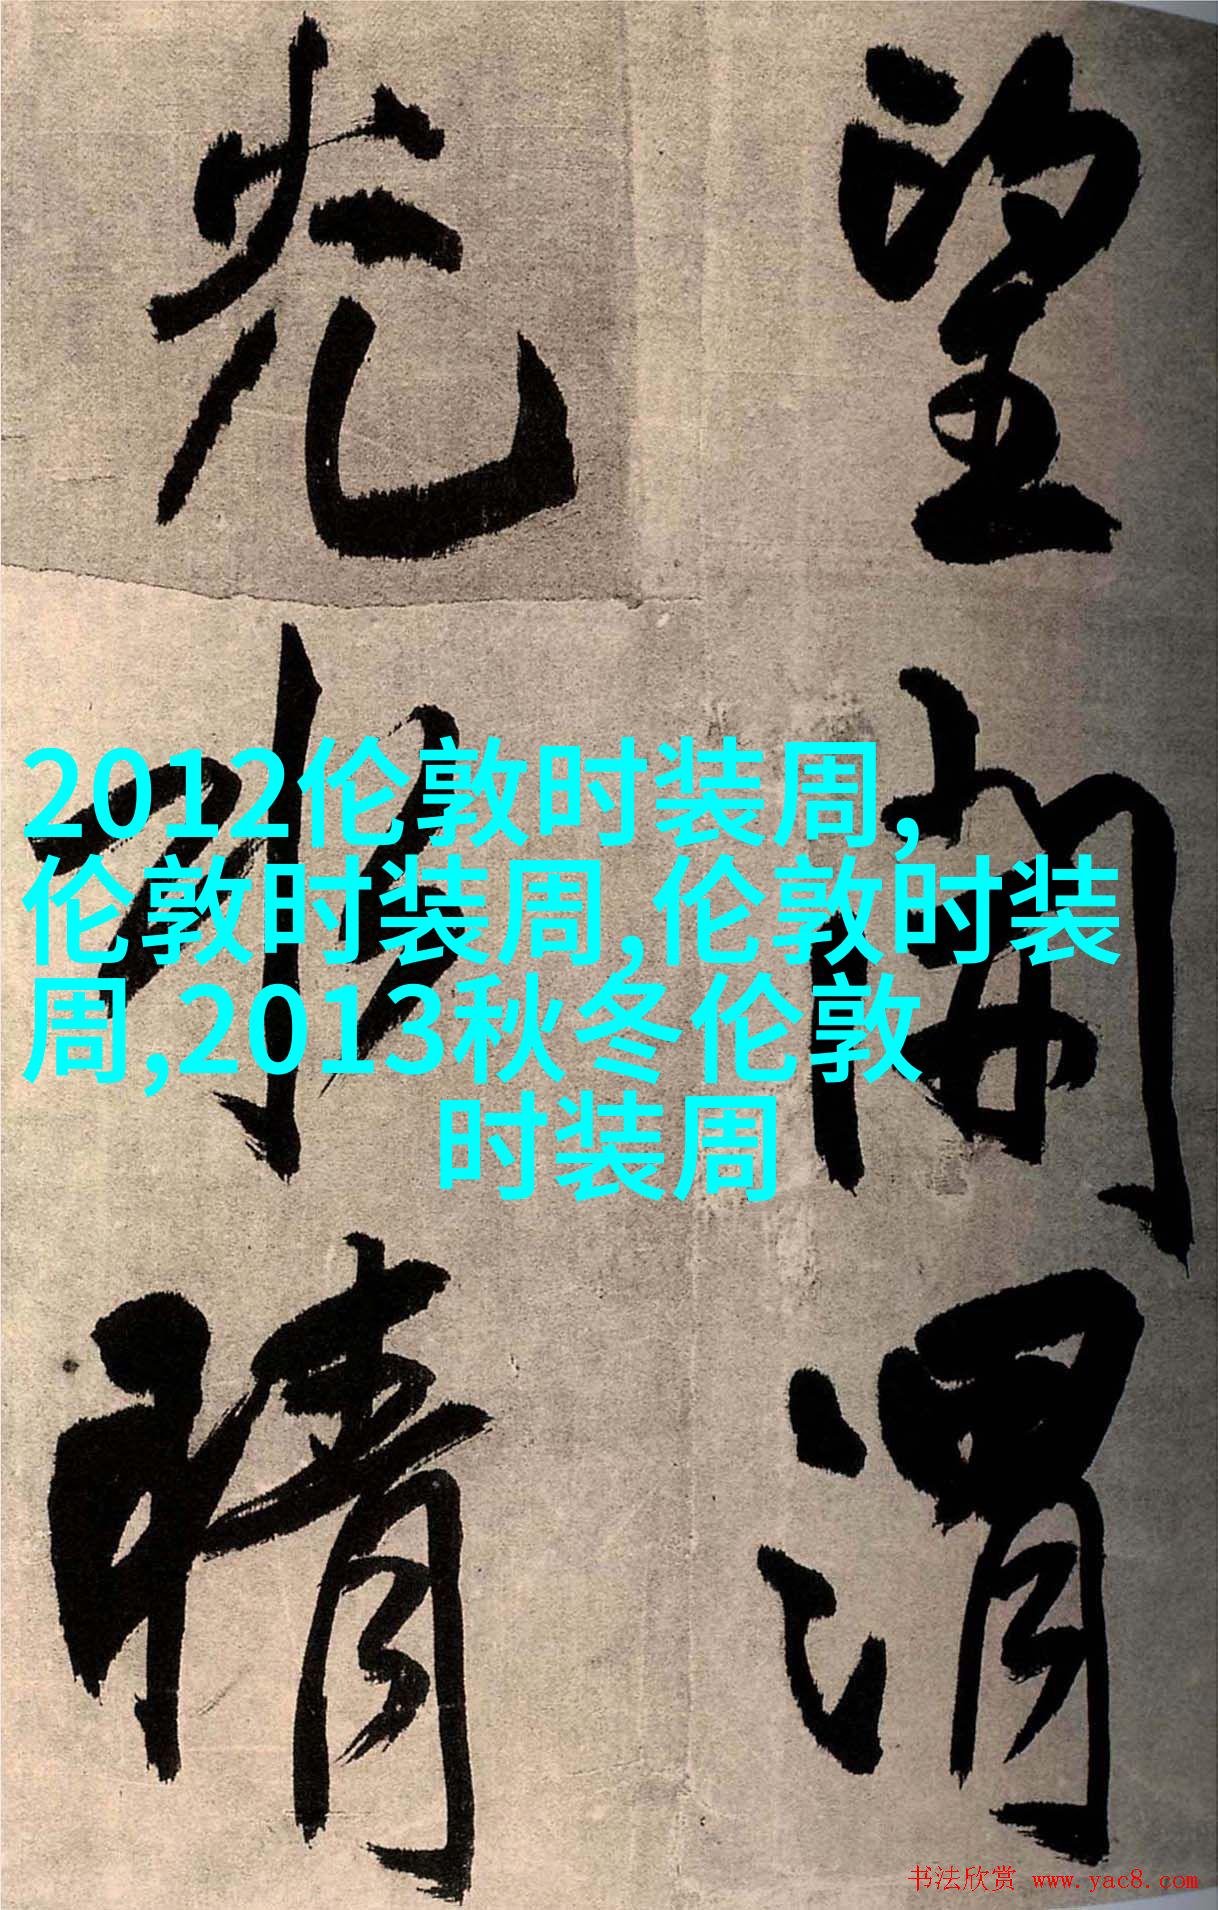 望開渭
光水晴
2012伦敦时装周,
伦敦时装周,伦敦时装
周,2013秋冬伦敦
时装周
书法欣赏 www.yac8.com